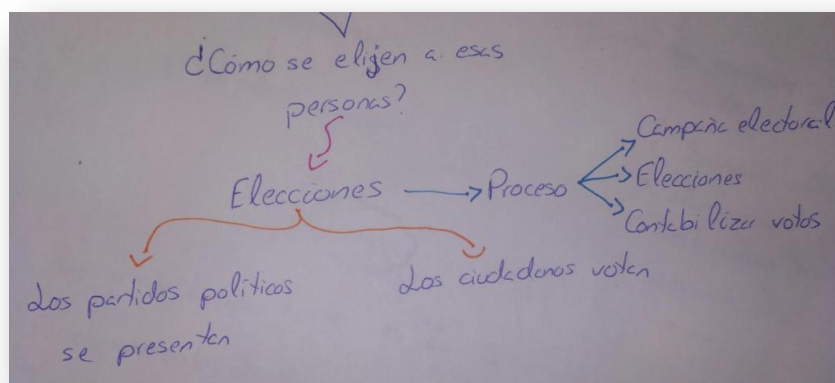 ¿Cómo se elijen a esas
personas?
Elecciones
Proceso
Campaña electoral
Elecciones
Contabilizar votos
Los partidos políticos
se presentan
Los ciudadanos votan